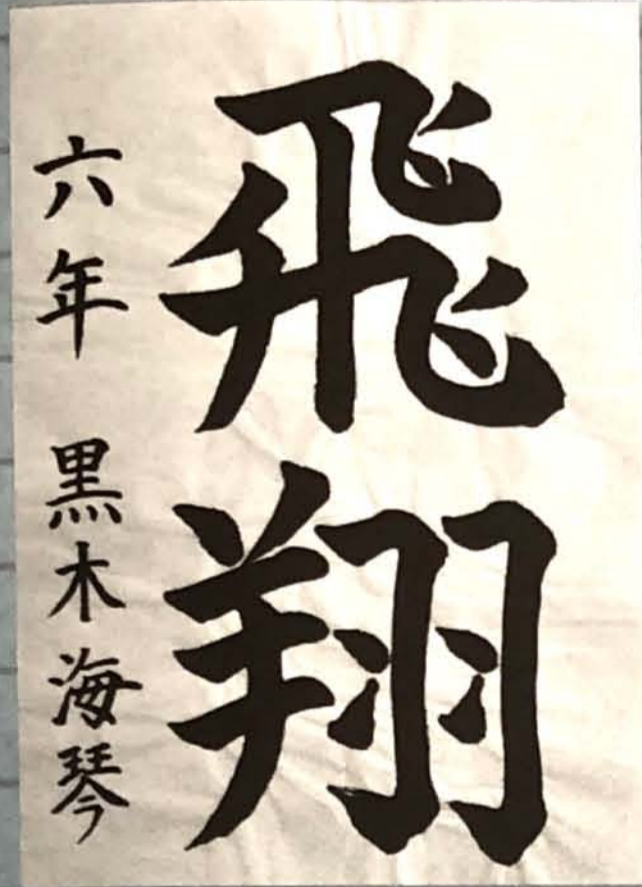 飛翔
六年 黒木海琴